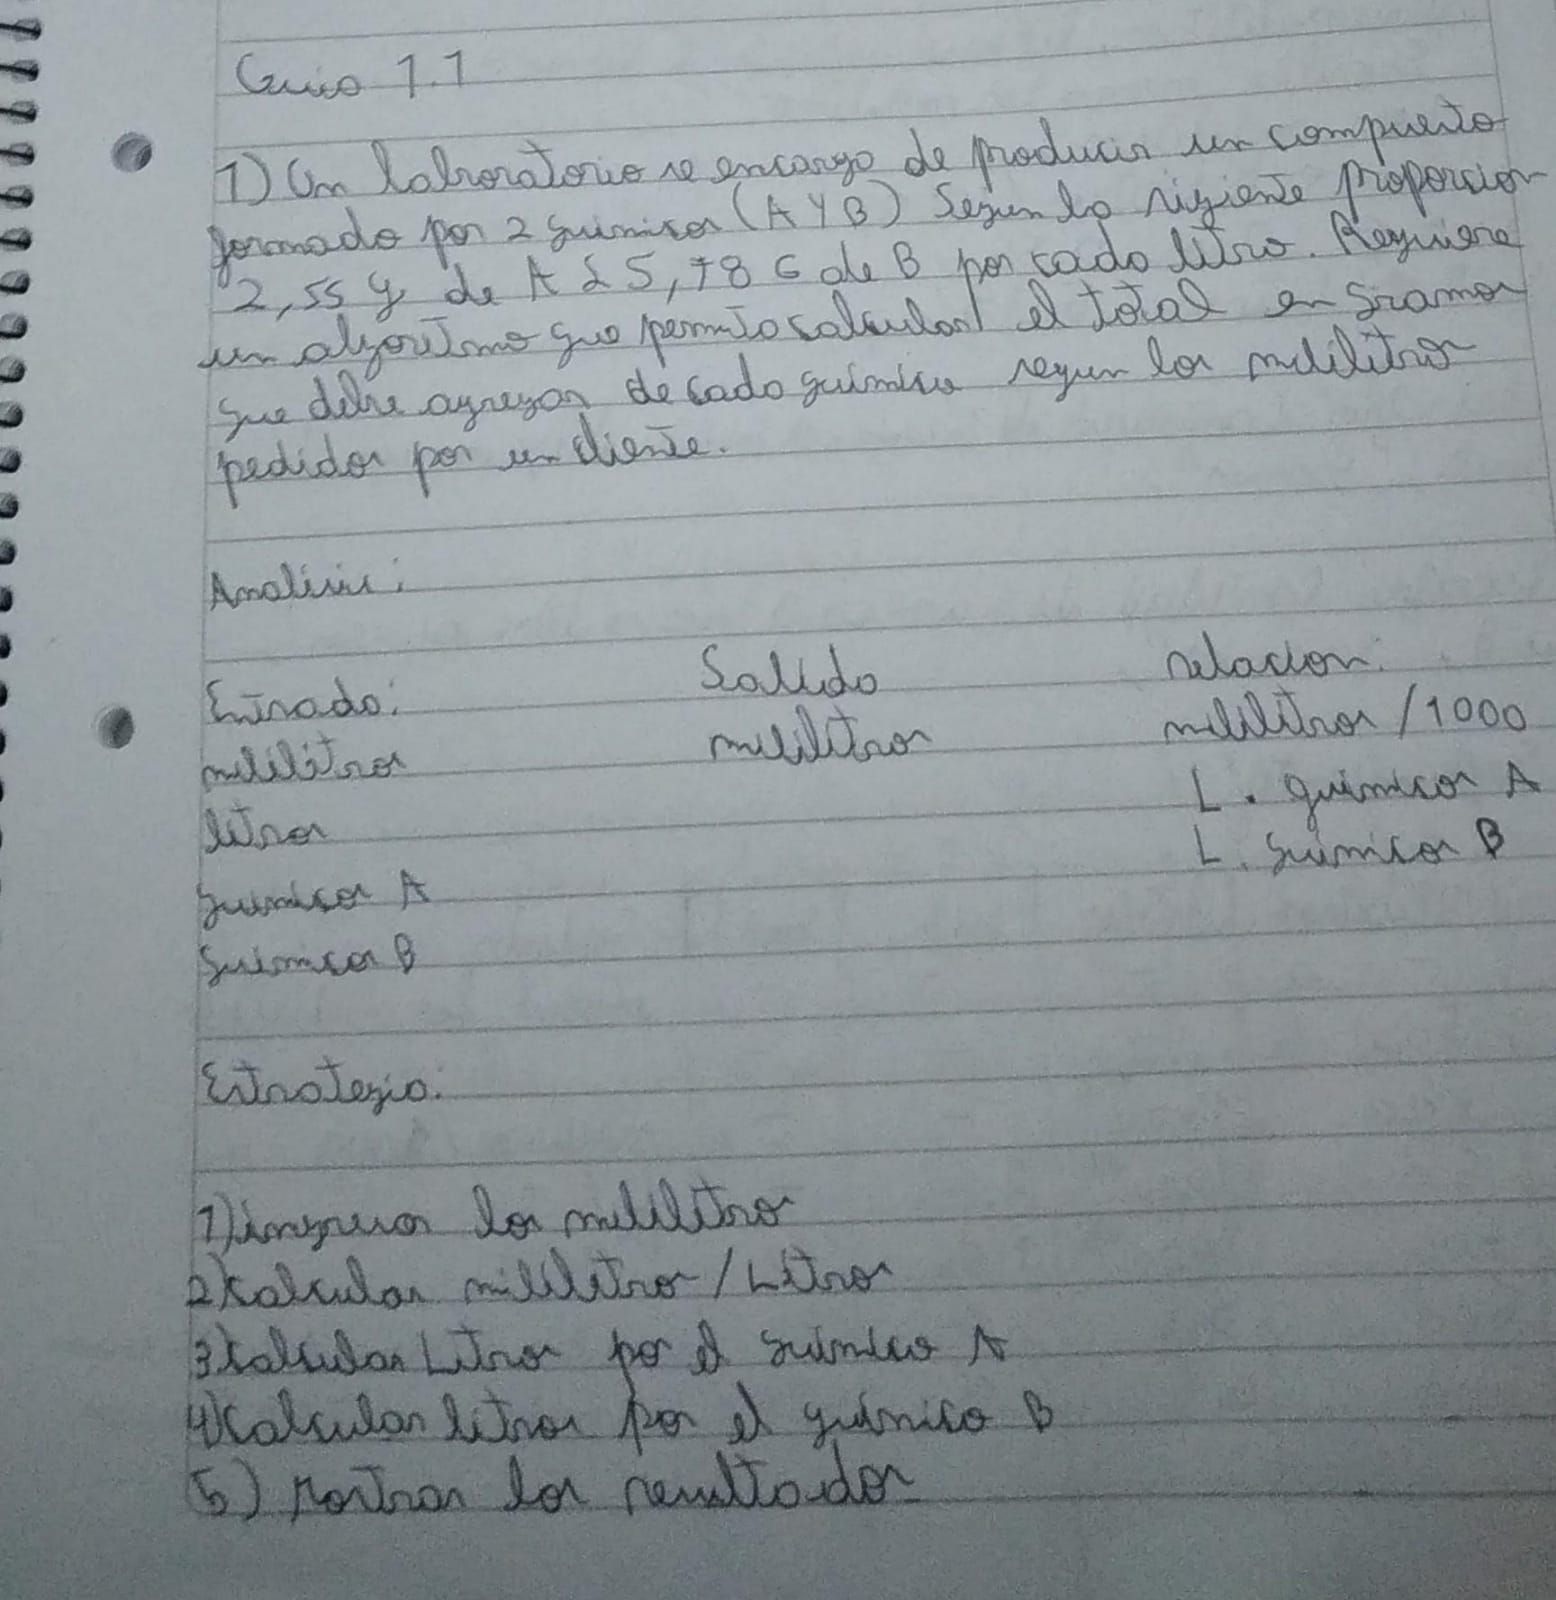 Guia 1.1
1) Un laboratorio se encarga de producir un compuesto
formado por 2 quimicos (A Y B) Segun la siguiente proporcion
2,55 g de A & 5,78 G de B por cada litro. Requiere
un algoritmo que permita calcular el total en gramos
que debe agregar de cada químico segun los mililitros
pedidos por un cliente.
Analisis:
Entrada: Salida relacion:
mililitros mililitros mililitros /1000
litros L. quimicos A
quimicos A L. quimicos B
quimicos B
Estrategia:
1) ingresar los mililitros
2) Calcular mililitros / Litros
3) Calcular Litros por el quimico A
4) Calcular litros por el químico B
5) Mostrar los resultados